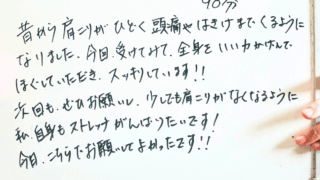 90分
昔から肩こりがひどく頭痛やはきけまでくるように
なりました。今回、受けてみて、全身をいいカゲんで
ほぐしていただき、スッキリしています!!
次回も、ぜひお願いし、少しでも肩こりがなくなるように
私自身もストレッチがんばりたいです!
今日、こちらでお願いしてよかったです!!